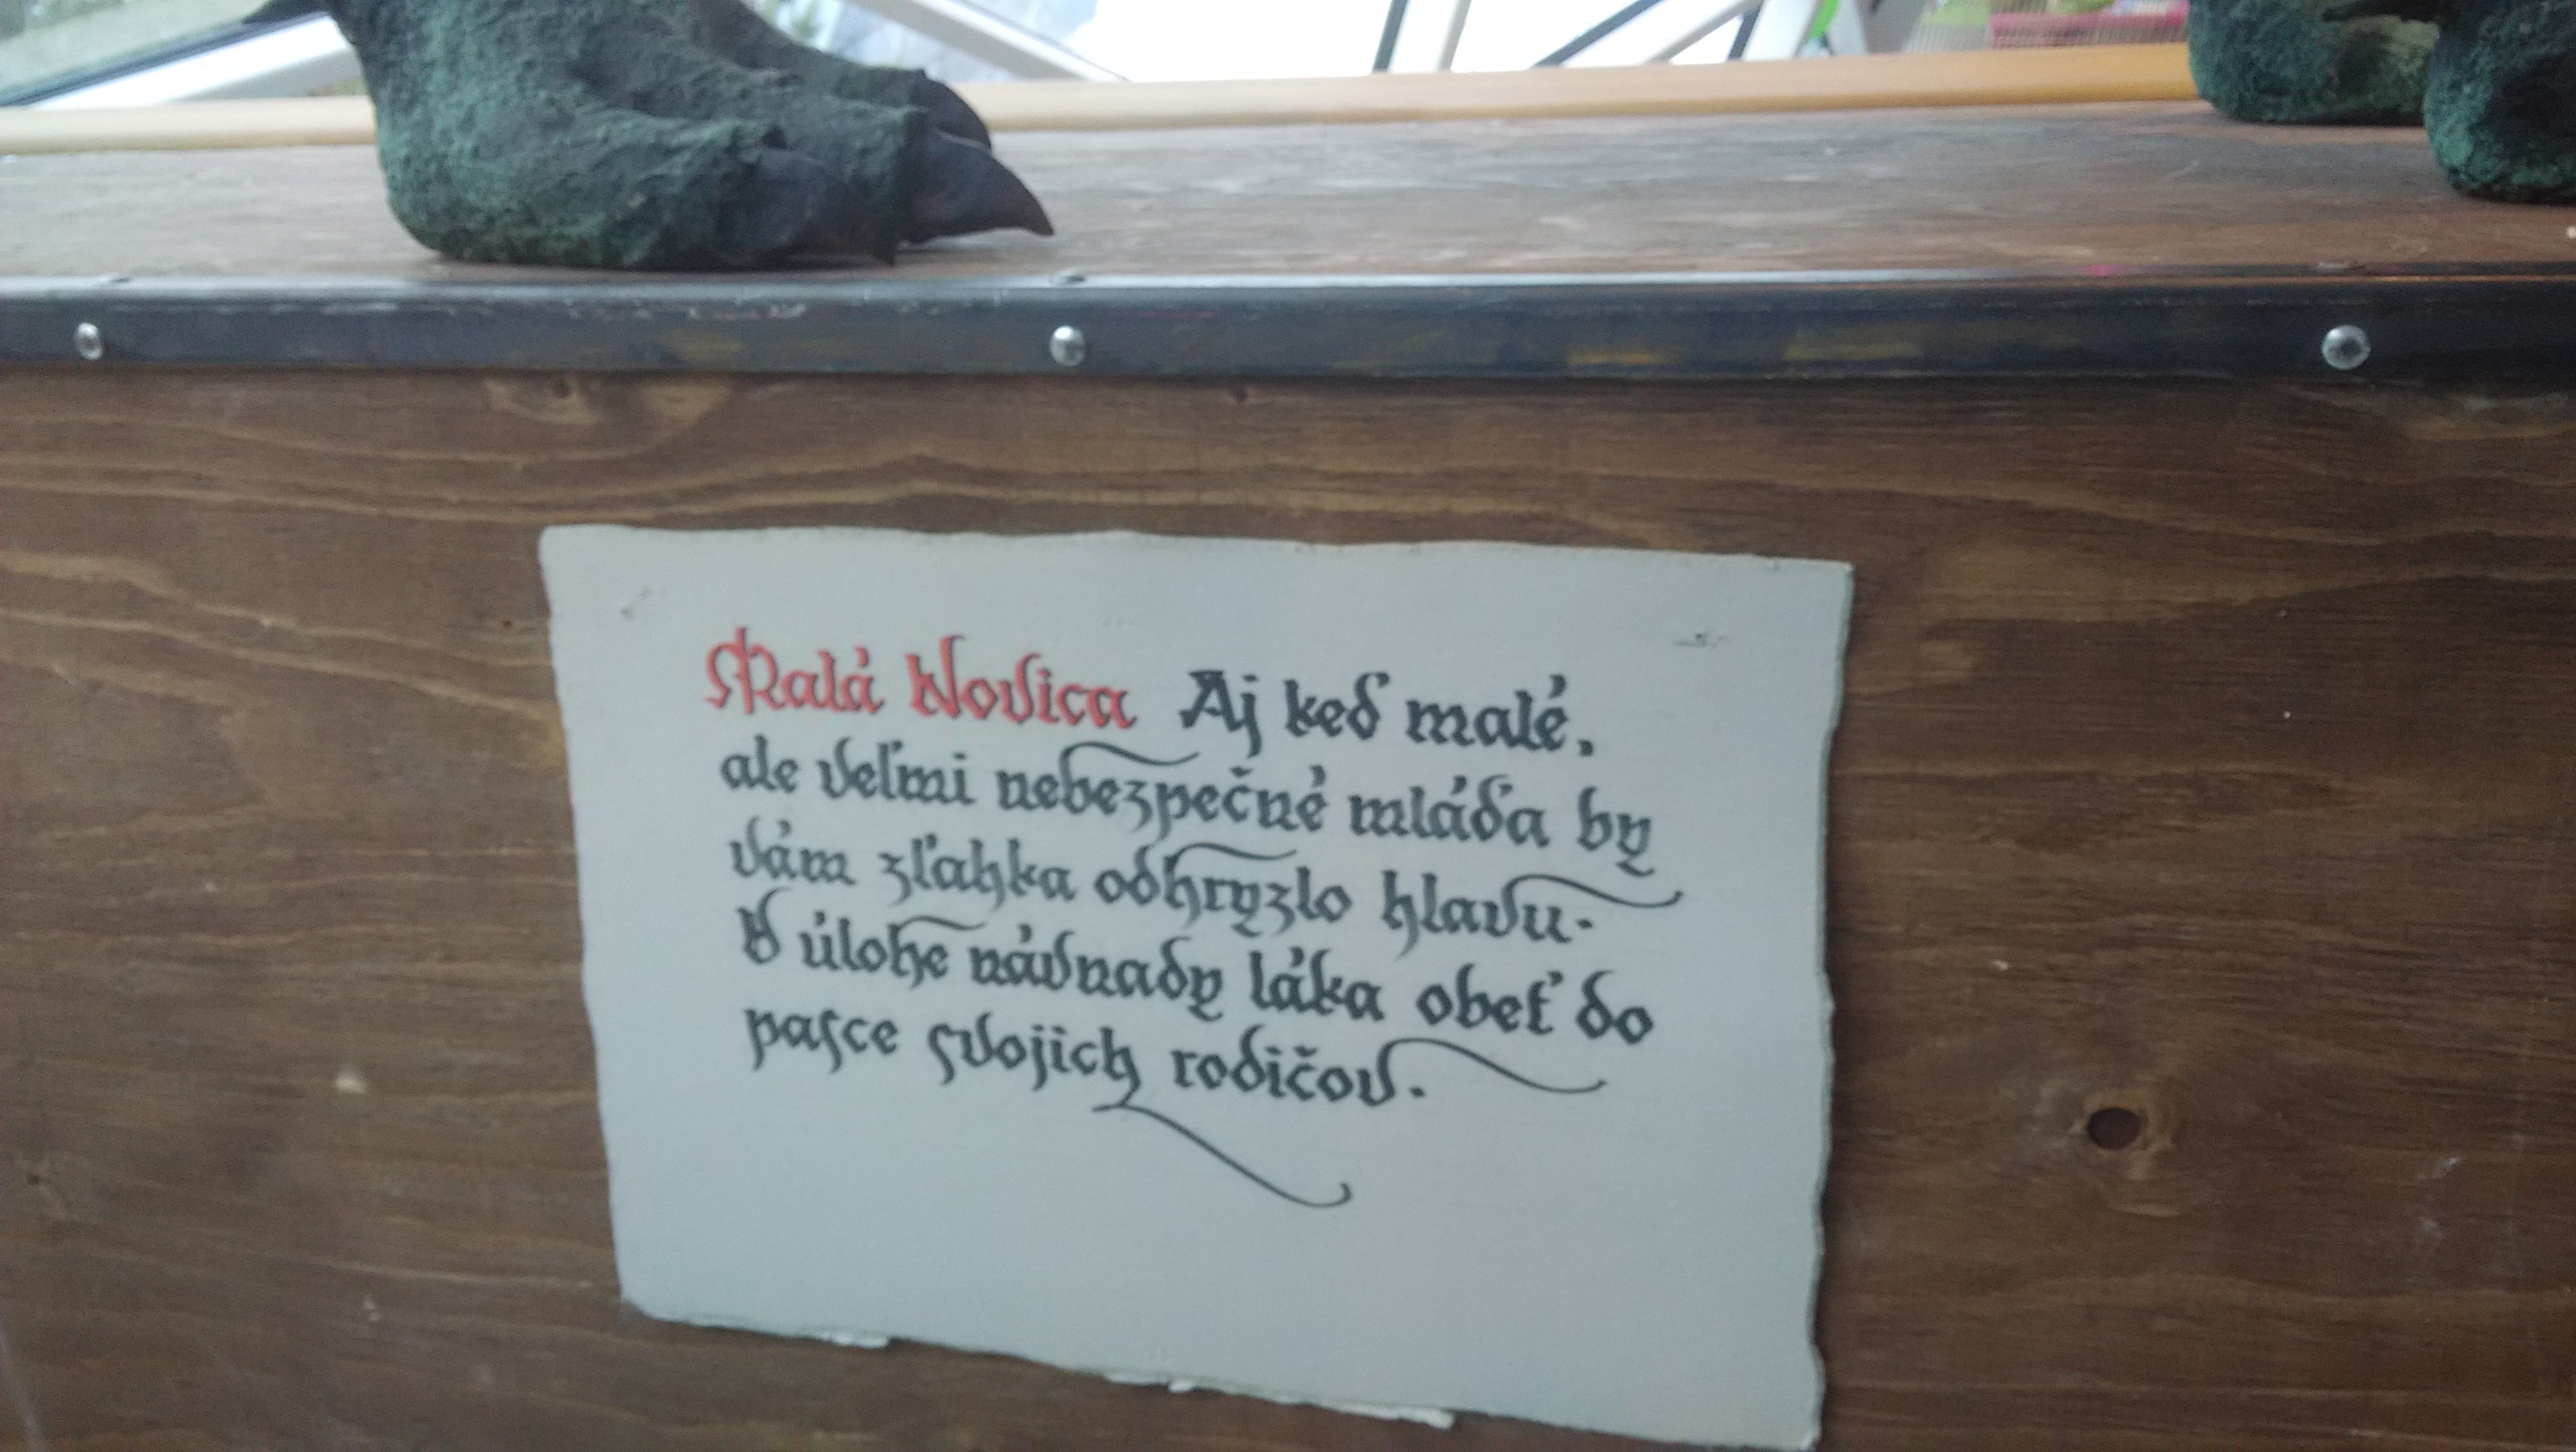 Malá Novica Aj keď malé,
ale veľmi nebezpečné mláďa by
vám zľahka odhryzlo hlavu.
V úlohe návnady láka obeť do
pasce svojich rodičov.